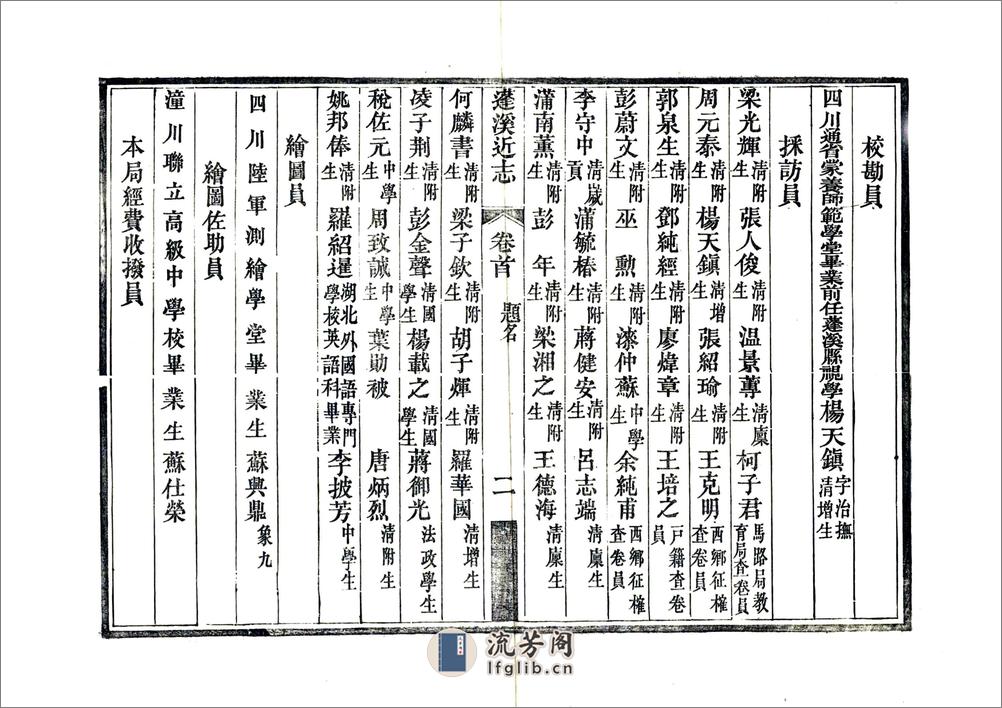 校勘員
四川通省蒙養師範學堂畢業前任蓬溪縣視學楊天鎮字治撫清增生
採訪員
梁光輝清附生 張人俊清附生 温景蓴清廩生 柯子君馬路局教育局查卷員
周元泰清附生 楊天鎮清增生 張紹瑜清附生 王克明西鄉征榷查卷員
郭泉生清附生 鄧純經清附生 廖煒章清附生 王培之戸籍查卷員
彭蔚文清附生 巫勲清附生 漆仲蘇中學生 余純甫西鄉征榷查卷員
李守中清歲貢 蒲毓椿清附生 蔣健安清附生 呂志端清廩生
蒲南薰清附生 彭年清附生 梁湘之清附生 王德海清廩生
蓬溪近志 卷首 題名 二
何麟書清附生 梁子欽清附生 胡子煇清附生 羅華國清增生
凌子荆清附生 彭金聲清國學生 楊載之清國學生 蔣御光法政學生
稅佐元中學生 周致誠中學生 葉勛被 唐炳烈清附生
姚邦俸清附生 羅紹暹湖北外國語專門學校英語科畢業 李披芳中學生
繪圖員
四川陸軍測繪學堂畢業生蘇興鼎象九
繪圖佐助員
潼川聯立高級中學校畢業生蘇仕榮
本局經費收撥員
流芳阁
lfglib.cn